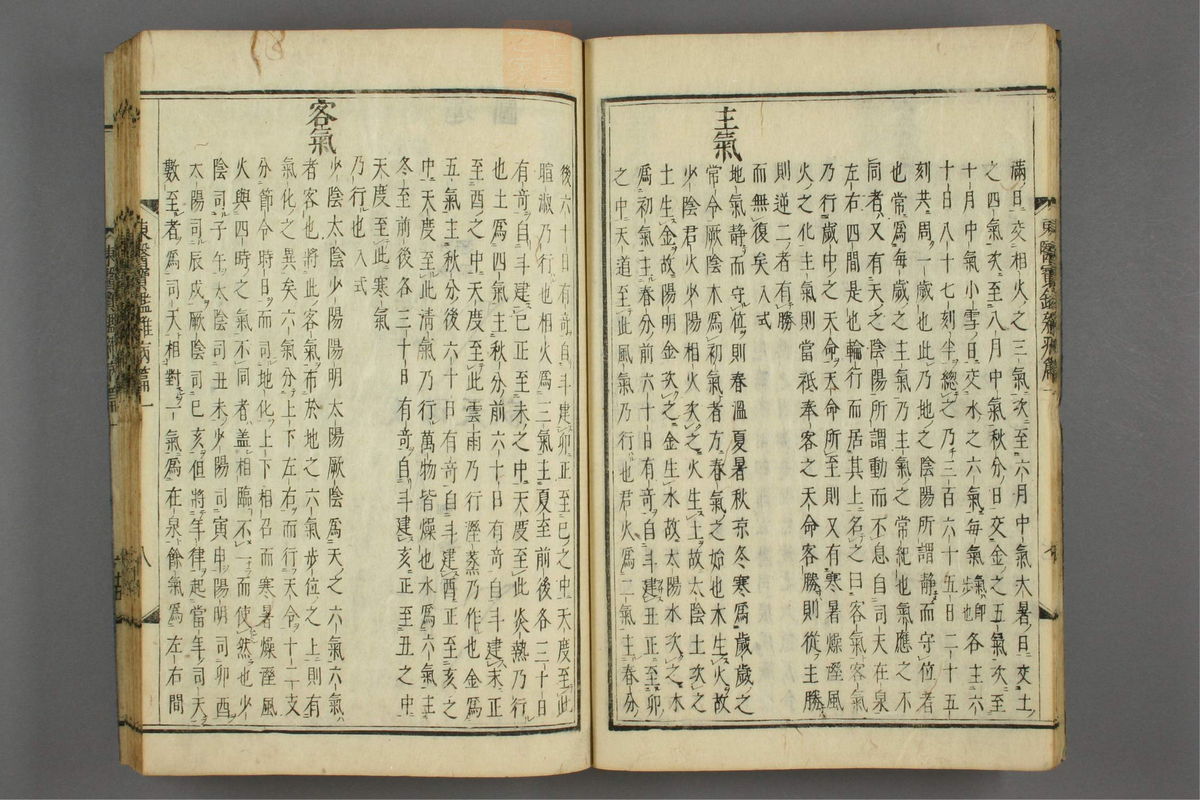 滿日交相火之三氣次至六月中氣大暑日交土
之四氣次至八月中氣秋分日交金之五氣次至
十月中氣小雪日交水之六氣每氣氣卽步也各主六
十日八十七刻半總之乃三百六十五日二十五
刻共一周歲也此乃地之陰陽所謂靜而守位者
也常爲每歲之主氣乃主氣之常紀也氣應之不
同者又有天之陰陽所謂動而不息自司天在泉
左右四間是也輪行而居其上名之曰客氣客氣
乃行歲中之天命天命所至則又有寒暑燥濕風
火之化主氣則當祗奉客之天命客勝則從主勝
則逆二者有勝
而無復矣入式
主氣
地氣靜而守位則春溫夏暑秋凉冬寒爲歲歲之
常令厥陰木爲初氣者方春氣之始也木生火故
少陰君火少陽相火次之火生土故太陰土次之
土生金故陽明金次之金生水故太陽水次之木
爲初氣主春分前六十日有奇自斗建丑正至卯
之中天道至此風氣乃行也君火爲二氣主春分
後六十日有奇自斗建卯正至巳之中天度至此
暄淑乃行也相火爲三氣主夏至前後各三十日
有奇自斗建巳正至未之中天度至此炎熱乃行
也土爲四氣主秋分前六十日有奇自斗建未正
至酉之中天度至此雲雨乃行濕蒸乃作也金爲
五氣主秋分後六十日有奇自斗建酉正至亥之
中天度至此清氣乃行萬物皆燥也水爲六氣主
冬至前後各三十日有奇自斗建亥正至丑之中
天度至此寒氣
乃行也入式
客氣
少陰太陰少陽陽明太陽厥陰爲天之六氣六氣
者客也將此客氣布於地之六氣步位之上則有
氣化之異矣六氣分上下左右而行天令十二支
分節令時日而司地化上下相召而寒暑燥濕風
火與四時之氣不同者盖相臨不一而使然也少
陰司子午太陰司丑未少陽司寅申陽明司卯酉
太陽司辰戌厥陰司巳亥但將年律起當年司天
數至者爲司天相對一氣爲在泉餘氣爲左右間
東醫寶鑑雜病篇一
八